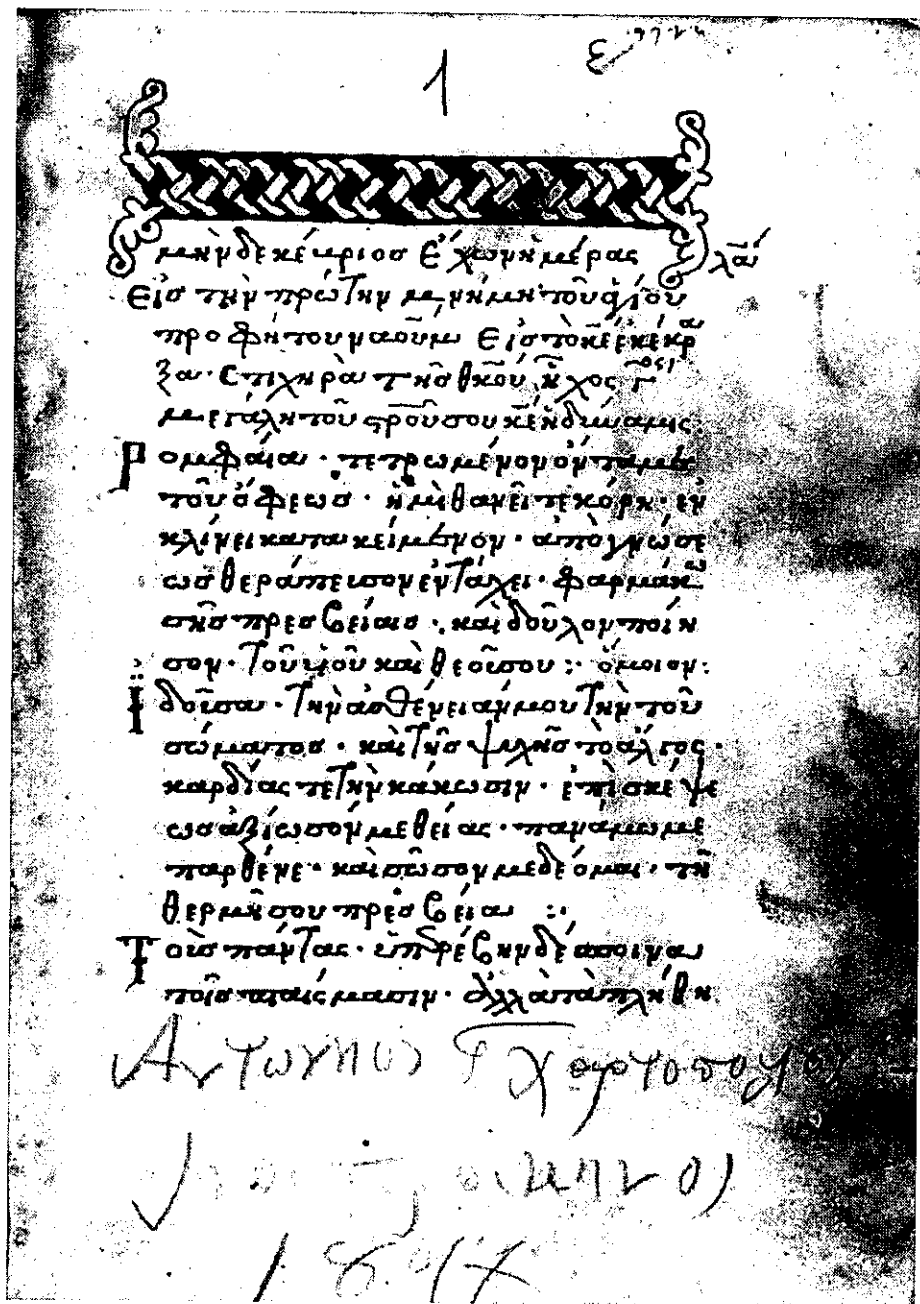 1
μὴν δεκέμριος ἔχων ἡμέρας λα
Εἰς τὴν πρώτην μνήμη τοῦ ἁγίου
προφήτου ναοὺμ Εἰς τὸ κε ἐκέκρ
ξα· στιχηρὰ τῆς θκου ἦχος
μεγάλη τοῦ σροῦ σου κε ἡ δύναμις:
Ρομφαία· τετρωμένον ὄντα με
τοῦ ὄφεως· ἡμιθανεῖ τε κόρη· ἐν
κλίνει κατακείμενον· ἀπογνώσε
ως θεράπευσον ἐν τάχει· φαρμάκω
σῆς πρεσβείαις· καὶ δοῦλον ποίη
σον· τοῦ υἱοῦ καὶ θεοῦ σου: ὅμοιον:
Ἰδοῦσα· τὴν ἀσθένειάν μου τὴν τοῦ
σώματος· καὶ τῆς ψυχῆς τὸ ἄλγος·
καρδίας τε τὴν κάκωσιν· ἐπισκέψε
ως ἀξίωσόν με θείας· πανάμωμε
παρθένε· καὶ σῶσον με δέομαι· τῆ
θερμῆ σου πρεσβεία :·
Τοὺς πάντας· ὑπερέβην δέσποινα
τοῖς πταίσμασιν· ἀλλὰ τὰ πλήθη
Αντωνιος